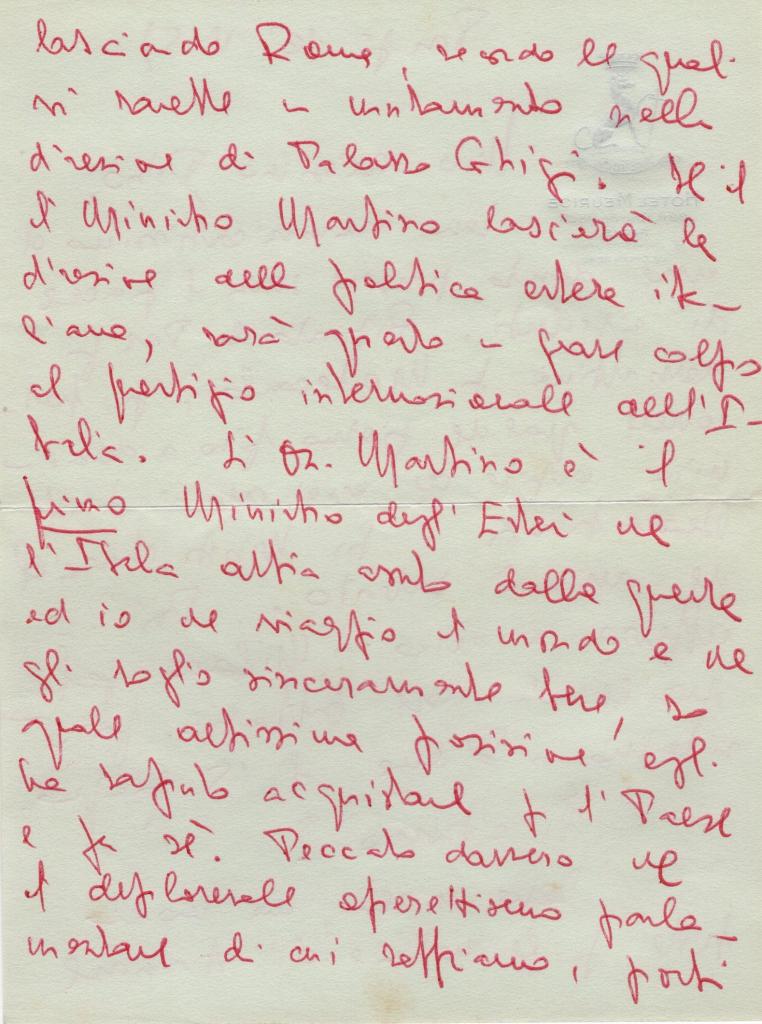 lasciando Roma, secondo le quali
vi sarebbe un mutamento nella
direzione di Palazzo Chigi. Se il
il Ministro Martino lascerà la
direzione della politica estera ita-
liana, sarà questo un grave colpo
al prestigio internazionale dell'I-
talia. L'On. Martino è il
primo Ministro degli Esteri che
l'Italia abbia avuto dalla guerra
ed io che viaggio il mondo e che
gli voglio sinceramente bene, so
quale altissima posizione egli
ha saputo acquistare per il Paese
e per sè. Peccato davvero che
il deplorevole operettismo parla-
mentare di cui sappiamo, porti